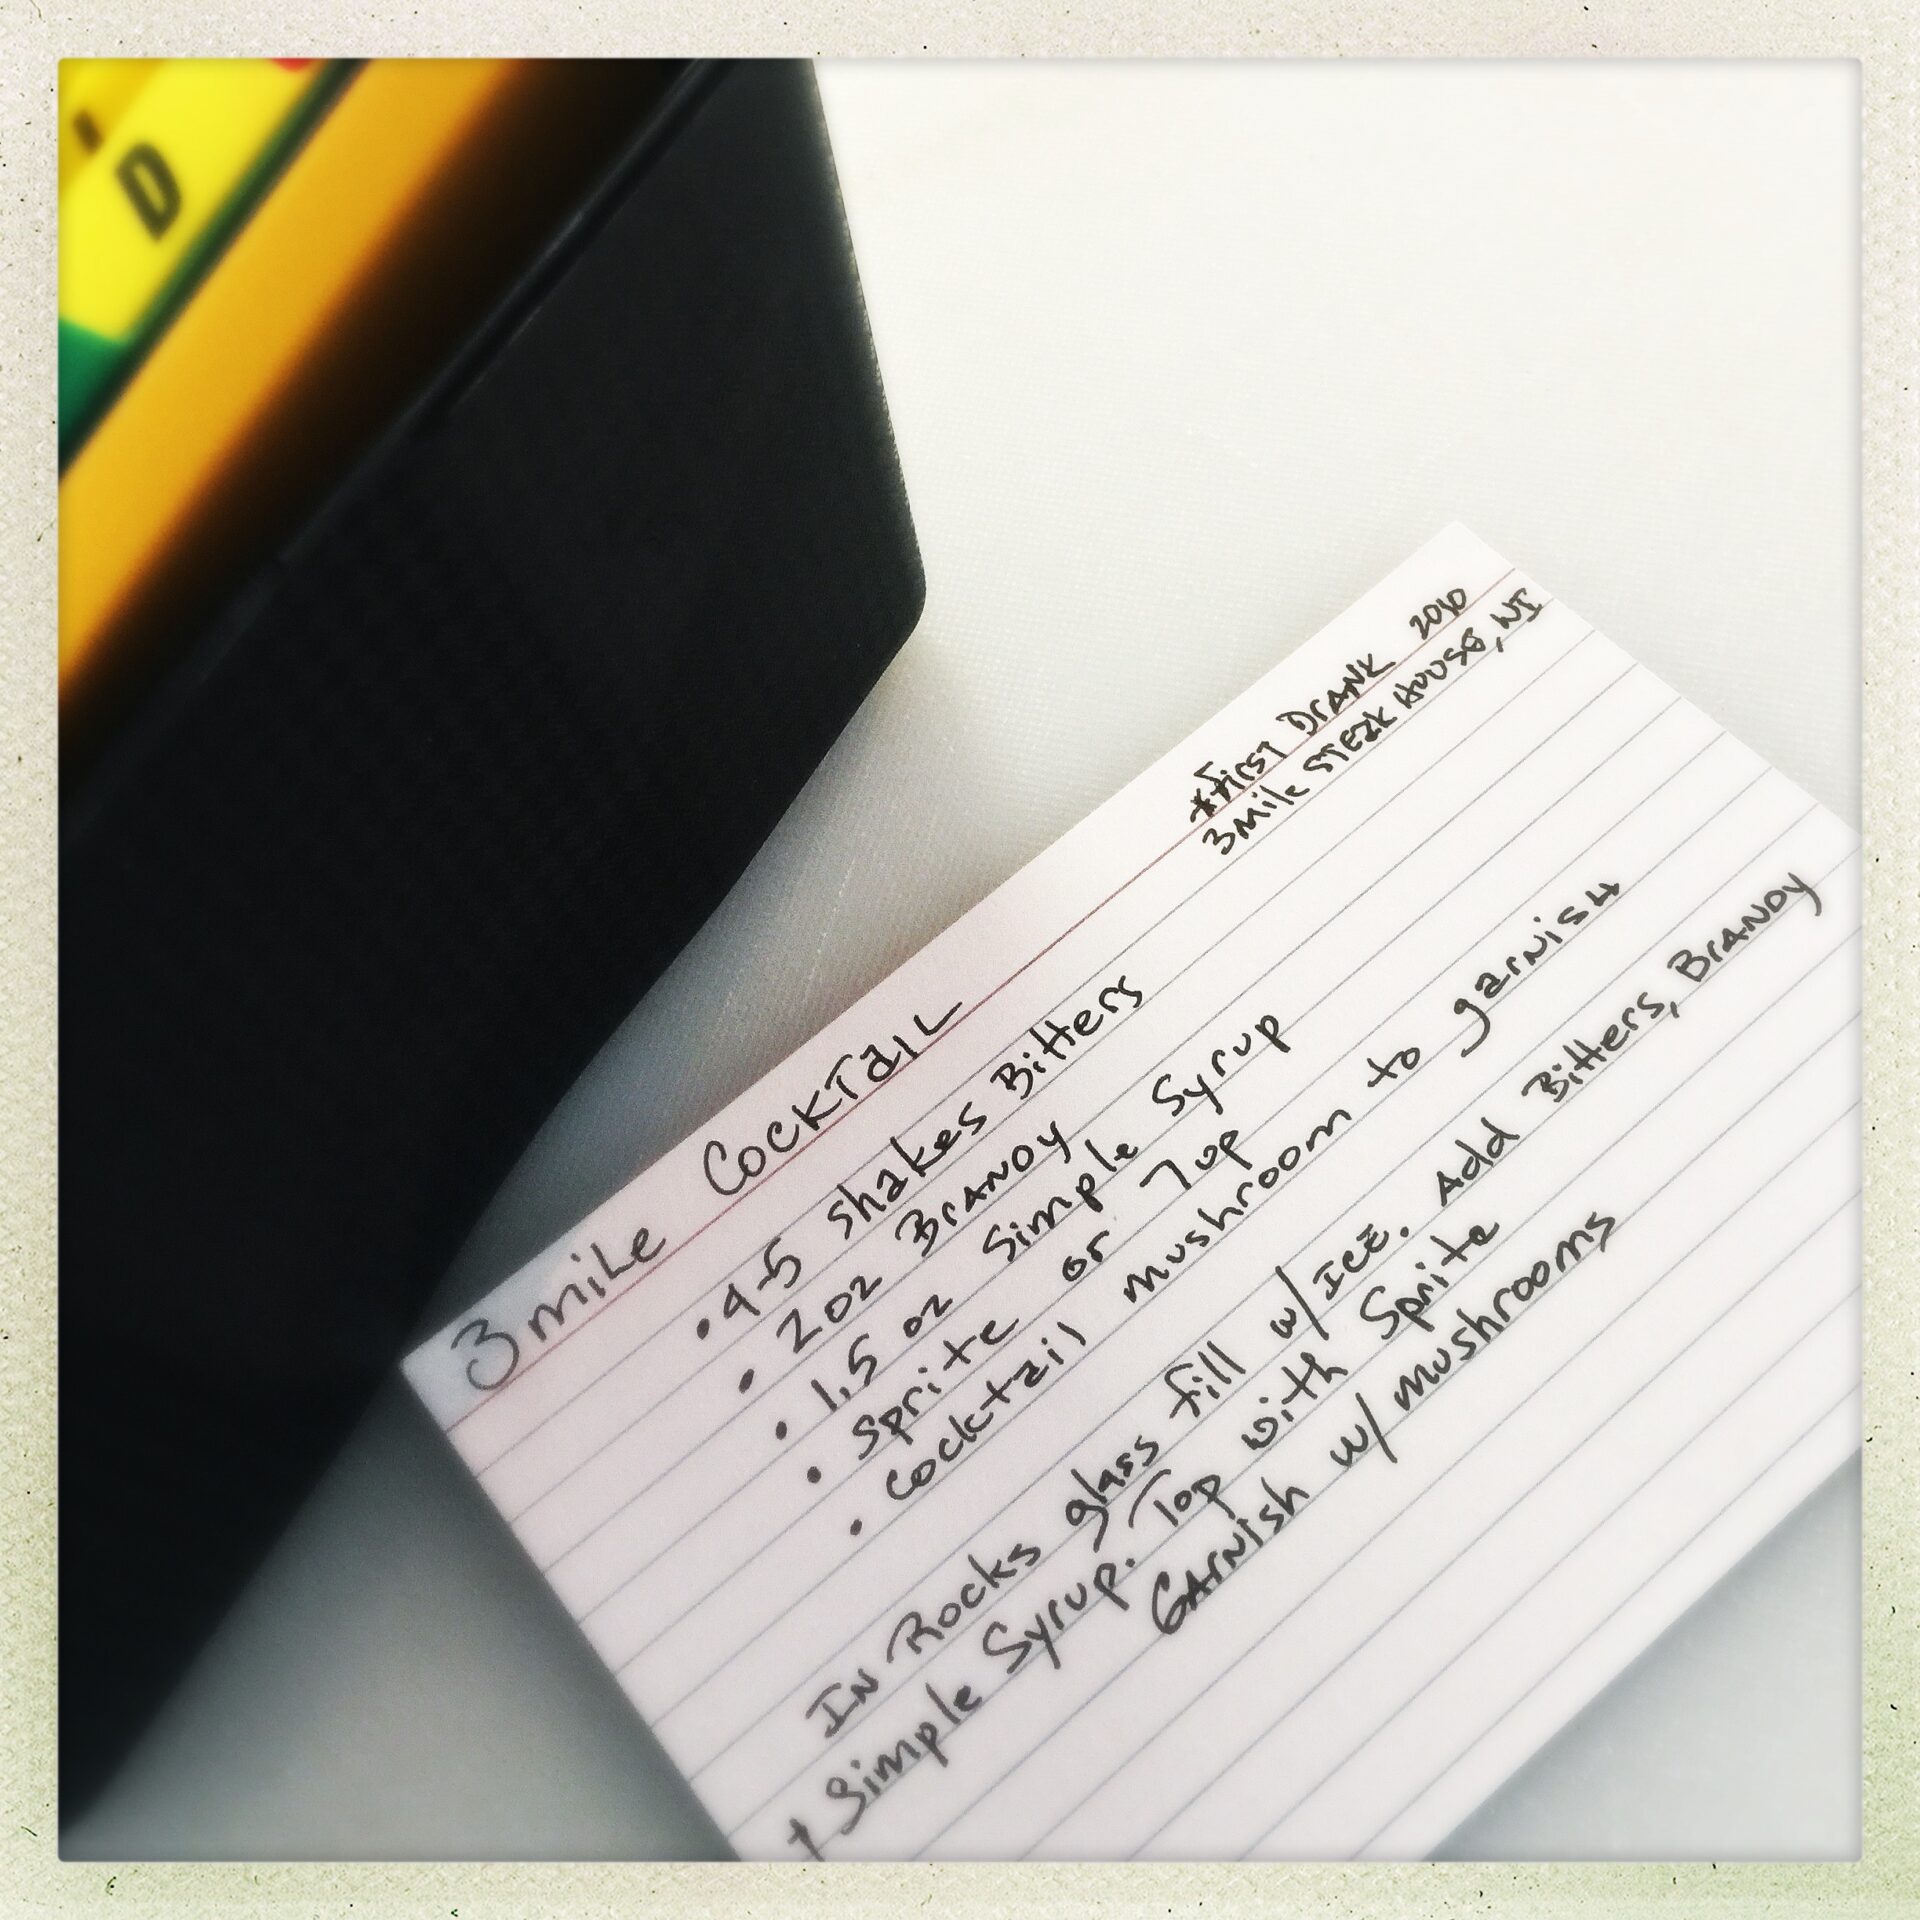 D
*First Drank 2010
3mile Steak House, WI
3mile Cocktail
• 4-5 shakes Bitters
• 2 oz Brandy
• 1.5 oz Simple Syrup
• Sprite or 7up
• cocktail mushroom to garnish
In Rocks glass fill w/ Ice. Add Bitters, Brandy
+ Simple Syrup. Top with Sprite
Garnish w/ mushrooms